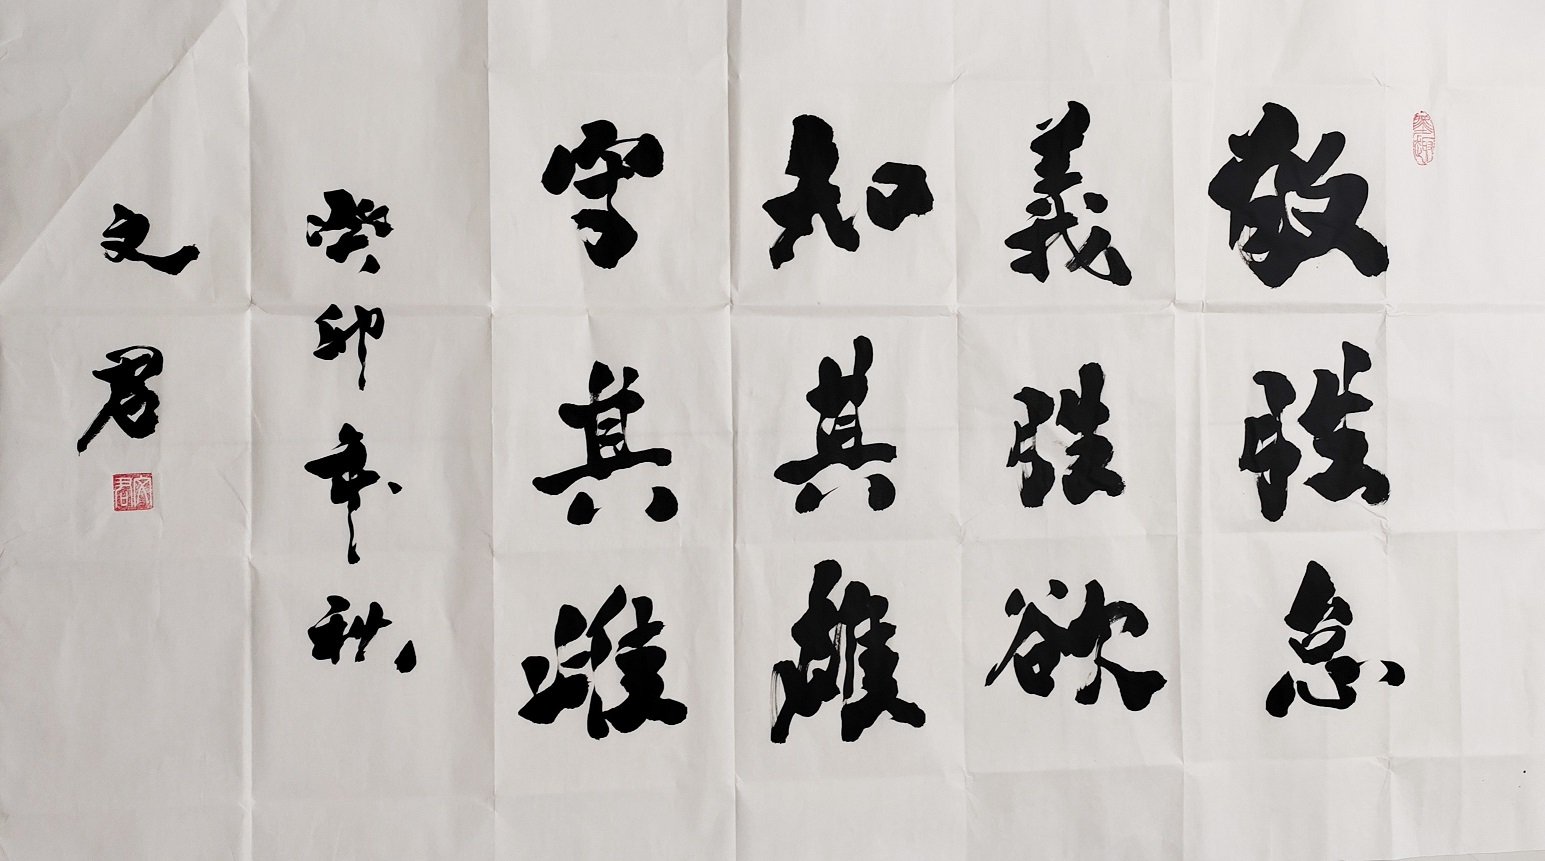 敬胜怠
義胜欲
知其雄
守其雌
癸卯年秋
文君
文君